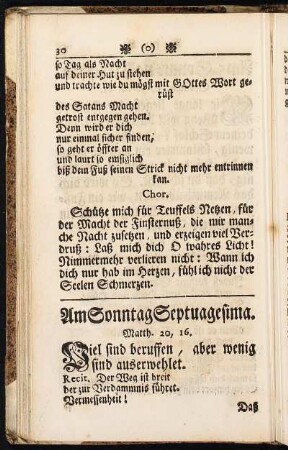 30 ❋ (o) ❋
so Tag als Nacht
auf deiner Hut zu stehen
und trachte wie du mögst mit GOttes Wort ge-
rüst
des Satans Macht
getrost entgegen gehen.
Denn wird er dich
nur einmal sicher finden,
so geht er öffter an
und laurt so emsiglich
biß dem Fuß seinen Strick nicht mehr entrinnen
kan.
Chor.
Schütze mich für Teuffels Netzen, für
der Macht der Finsternuß, die mir man-
che Nacht zusetzen, und erzeigen viel Ver-
druß: Laß mich dich O wahres Licht!
Nimmermehr verlieren nicht: Wann ich
dich nur hab im Herzen, fühl ich nicht der
Seelen Schmerzen.
Am Sonntag Septuagesima.
Matth. 20, 16.
Viel sind beruffen, aber wenig
sind auserwehlet.
Recit. Der Weg ist breit
der zur Verdammnis führet.
Vermessenheit!
Daß